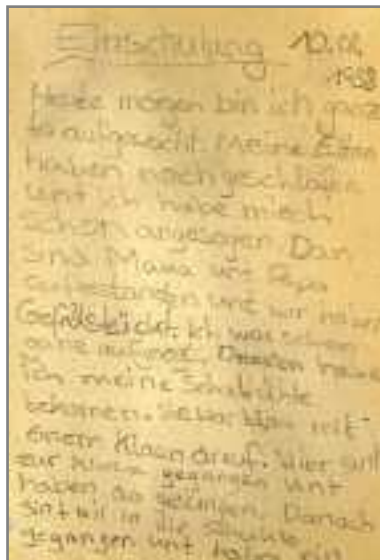 Einschulung 10.08
1988
Heute morgen bin ich ganz
aufgewacht. Meine Eltern
haben noch geschlafen
unt ich habe miech
schon angezogen. Dan
sind Mama unt Papa
aufgestanden unt wir haben
Gefrühstückt. Ich war schon
habe
ich meine Schultühte
bekomen. Sie war blau mit
einem Klaun drauf. Wier sint
zur gegangen unt
haben da gesungen. Danach
sint wir in die Schuhle
gegangen unt haben